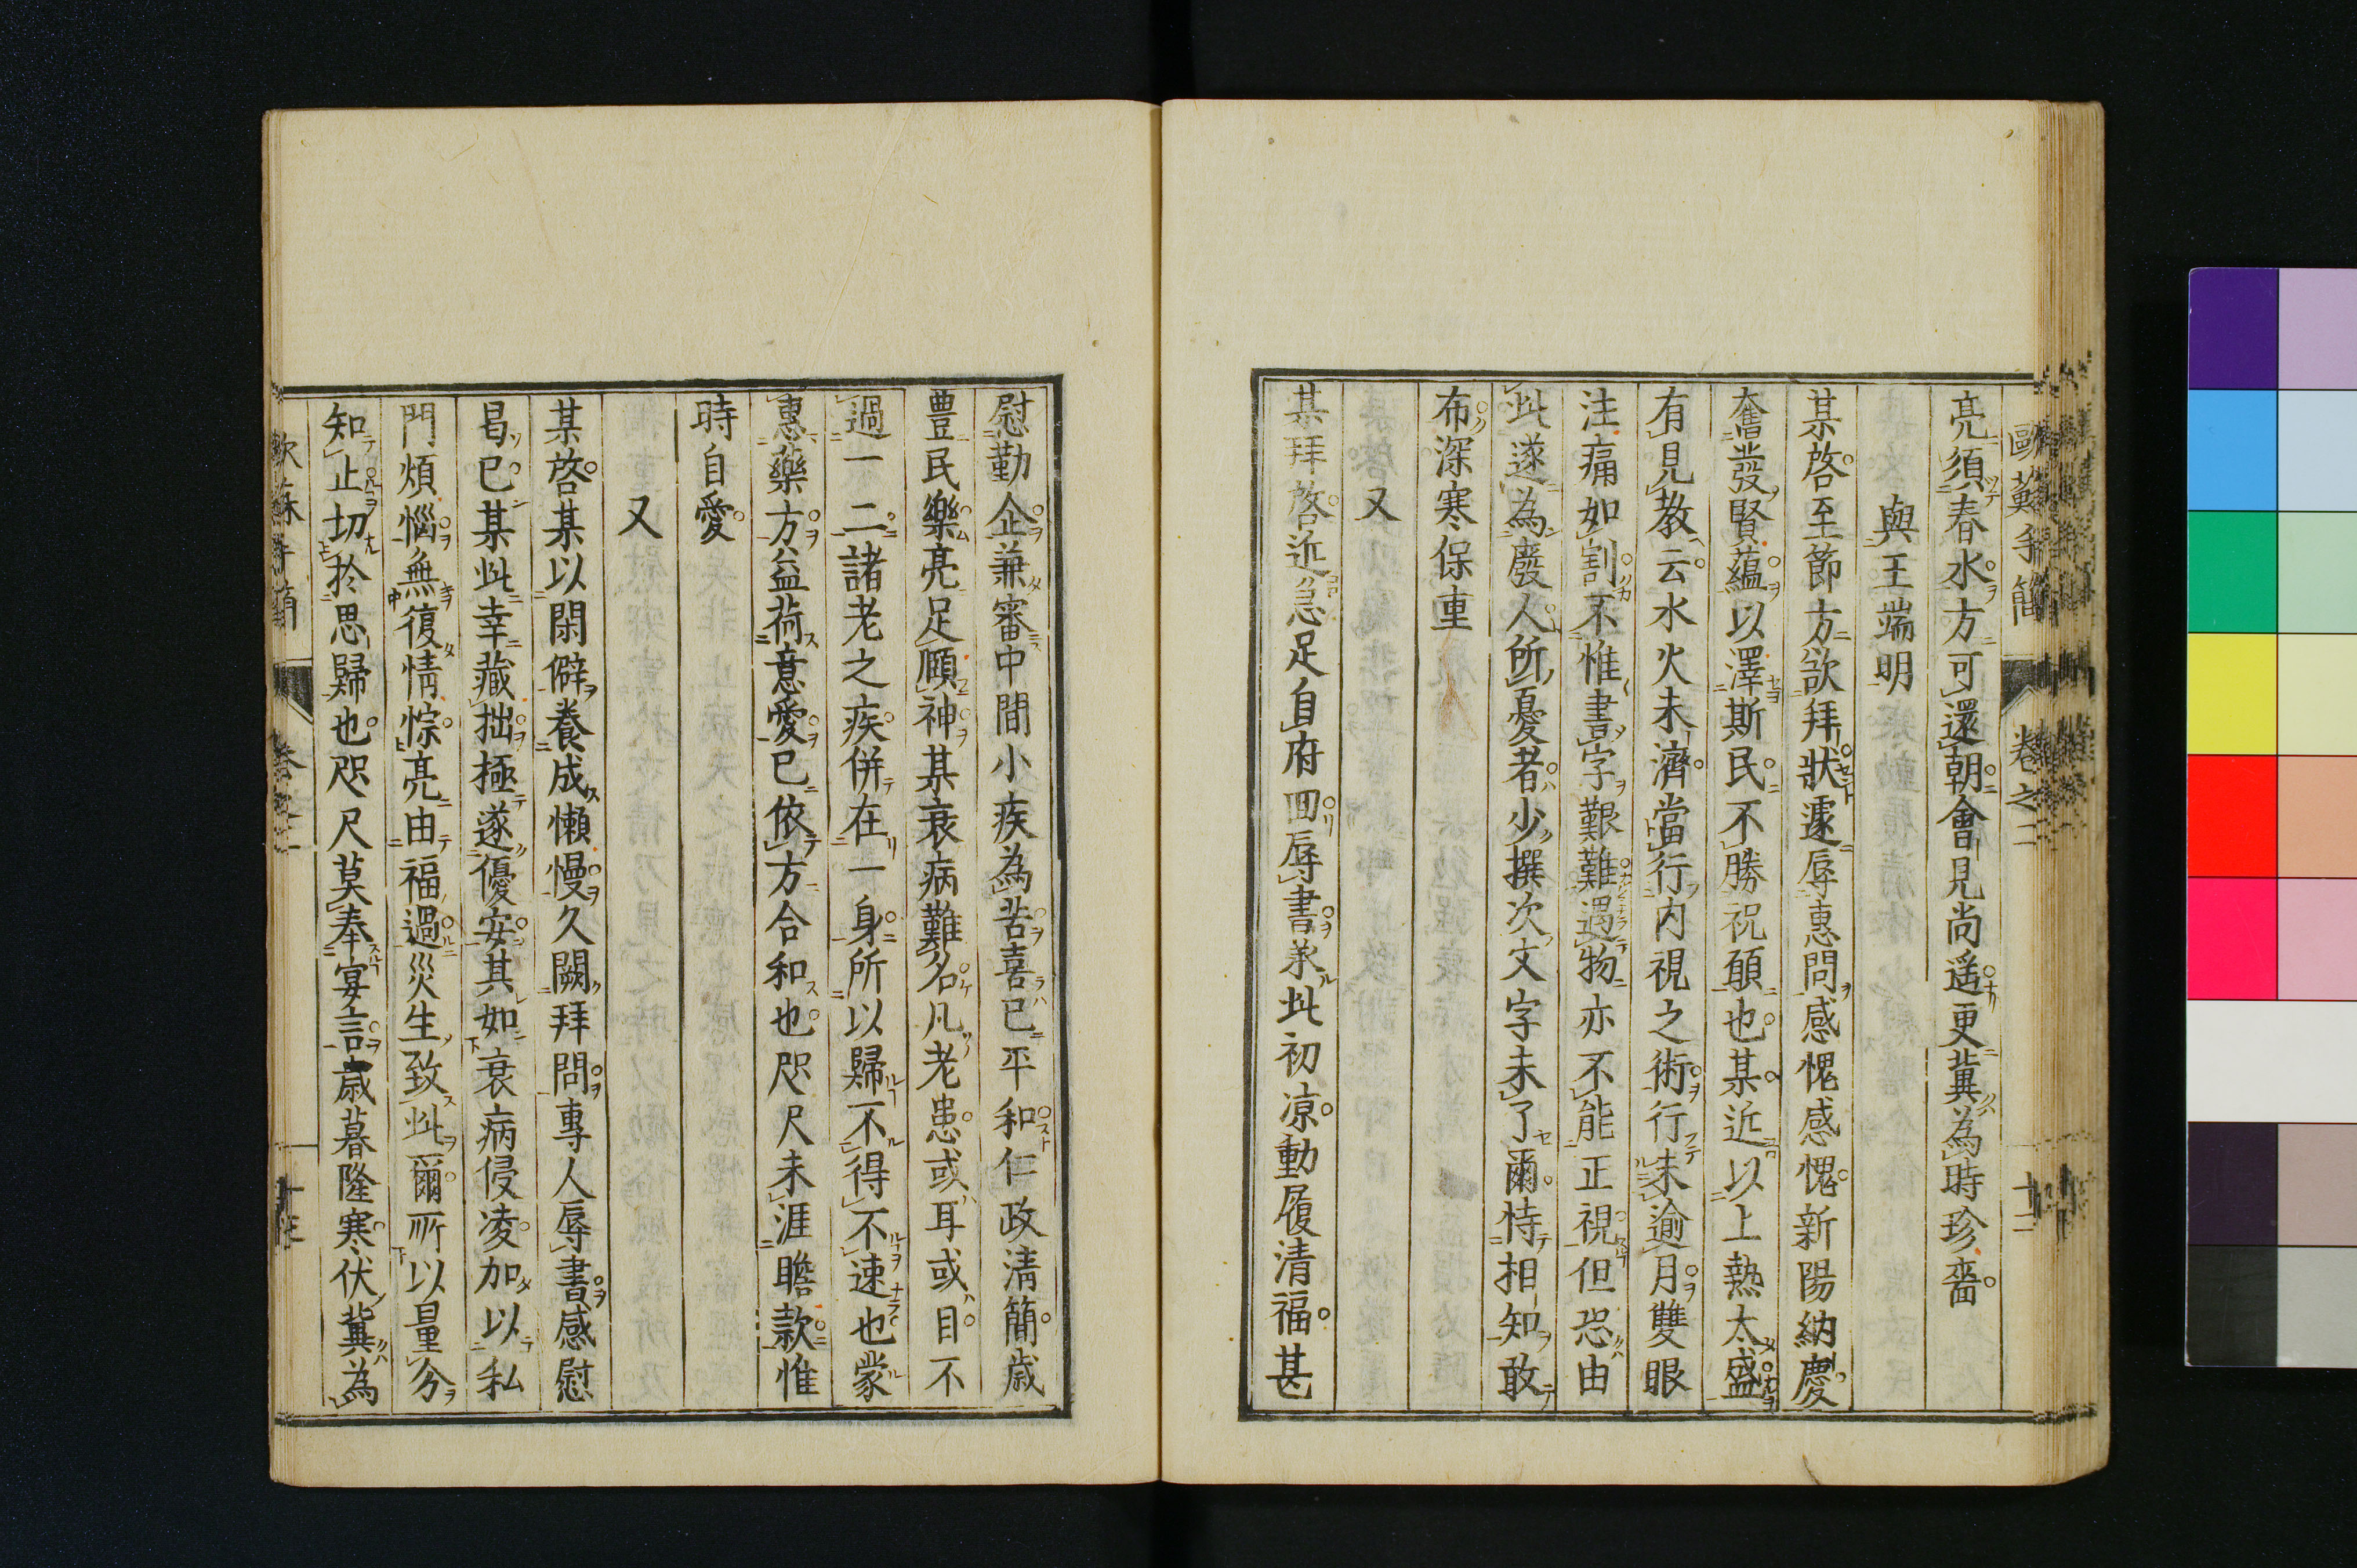 歐蘇手簡 卷之二 十二
亮須春水方可還朝會見尚遥更冀為時珍嗇
與王端明
某啓至節方欲拜狀遽辱惠問感愧感愧新陽納慶
奮發賢蘊以澤斯民不勝祝頋也某近以上熱太盛
有見教云水火未濟當行内視之術行未逾月雙眼
注痛如割不惟書字艱難遇物亦不能正視但恐由
此遂為廢人所憂者少撰次文字未了爾恃相知敢
布深寒保重
又
某拜啓近急足自府囬辱書承此初凉動履清福甚
慰勤企兼審中間小疾為苦喜已平和仁政清簡歲
豊民樂亮足頤神某衰病難名凡老患或耳或目不
過一二諸老之疾併在一身所以歸不得不速也蒙
惠藥方益荷意愛已依方合和也咫尺未涯瞻款惟
時自愛
又
某啓某以閑僻養成懶慢久闕拜問專人辱書感慰
曷已某此幸藏拙極遂優安其如衰病侵凌加以私
門煩惱無復情悰亮由福過災生致此爾所以量分
知止切於思歸也咫尺莫奉宴言歳暮隆寒伏冀為